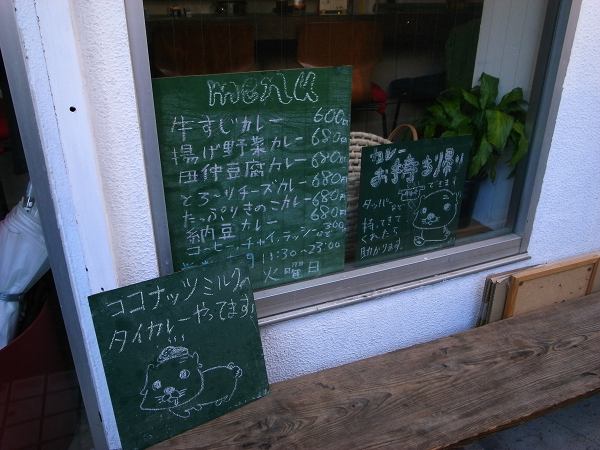 menu
牛すじカレー 600円
揚げ野菜カレー 680円
田仲豆腐カレー 680円
とろ〜りチーズカレー 680円
たっぷりきのこカレー 680円
納豆カレー 680円
コーヒー・チャイ・ラッシー 300
11:30〜23:00
火曜日
カレー
お持ち帰り
できます
タッパー
持ってきて
くれたら
助かります
ココナッツミルクの
タイカレーやってます